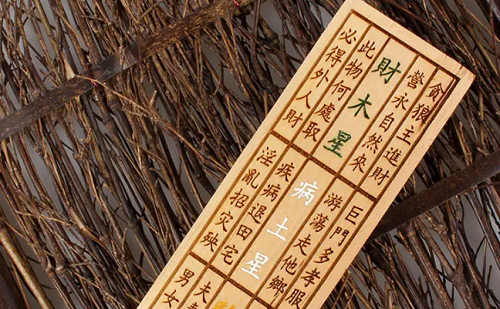 貪狼主進財
營永自然來
財木星
此物何處取
必得外人財
巨門多孝服
游蕩走他鄉
病土星
疾病退田宅
淫亂招灾殃
夫
男女